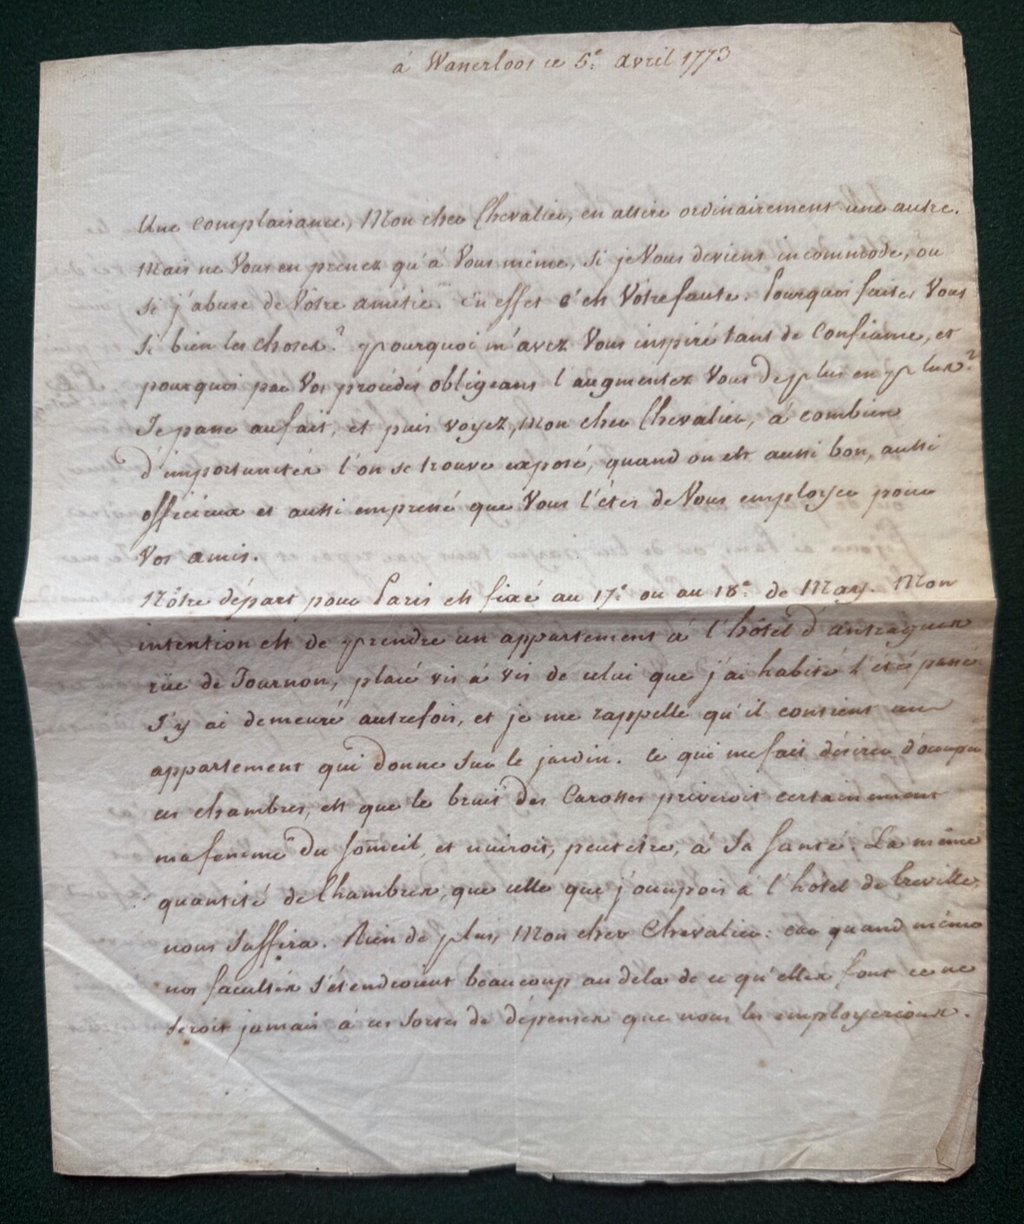 à Wanerloos ce 5.e avril 1773
Une complaisance, Mon cher Chevalier, en attire ordinairement une autre.
Mais ne Vous en prenez qu'à Vous même, si je Vous deviens incommode, ou
si j'abuse de Votre amitié. En effet c'est Votre faute. Pourquoi faites Vous
si bien les choses? pourquoi m'avez Vous inspiré tant de Confiance, et
pourquoi par Vos procédés obligeans l'augmentez Vous de plus en plus?
Je passe au fait, et puis voyez, Mon cher Chevalier, à combien
d'importunités l'on se trouve exposé, quand on est aussi bon, aussi
officieux et aussi empressé que Vous l'étes de Vous employer pour
Vos amis.
Nôtre départ pour Paris est fixé au 17.e ou au 18.e de May. Mon
intention est de prendre un appartement à l'hôtel d'antragues
rüe de Tournon, placé vis à vis de celui que j'ai habité l'eté passé
J'y ai demeuré autrefois, et je me rappelle qu'il contient un
appartement qui donne sur le jardin. Ce qui me fait désirer d'occuper
ces chambres, est que le bruit des Carosses priveroit certainement
ma femme du sommeil, et nuiroit, peutetre, à Sa Santé. La même
quantité de Chambres, que celle que j'occupois à l'hôtel de Treville
nous Suffira. Rien de plus, Mon cher Chevalier: car quand même
nos facultés s'étendroient beaucoup au dela de ce qu'elles font ce ne
seroit jamais à ces sortes de dépenses que nous les employerions.